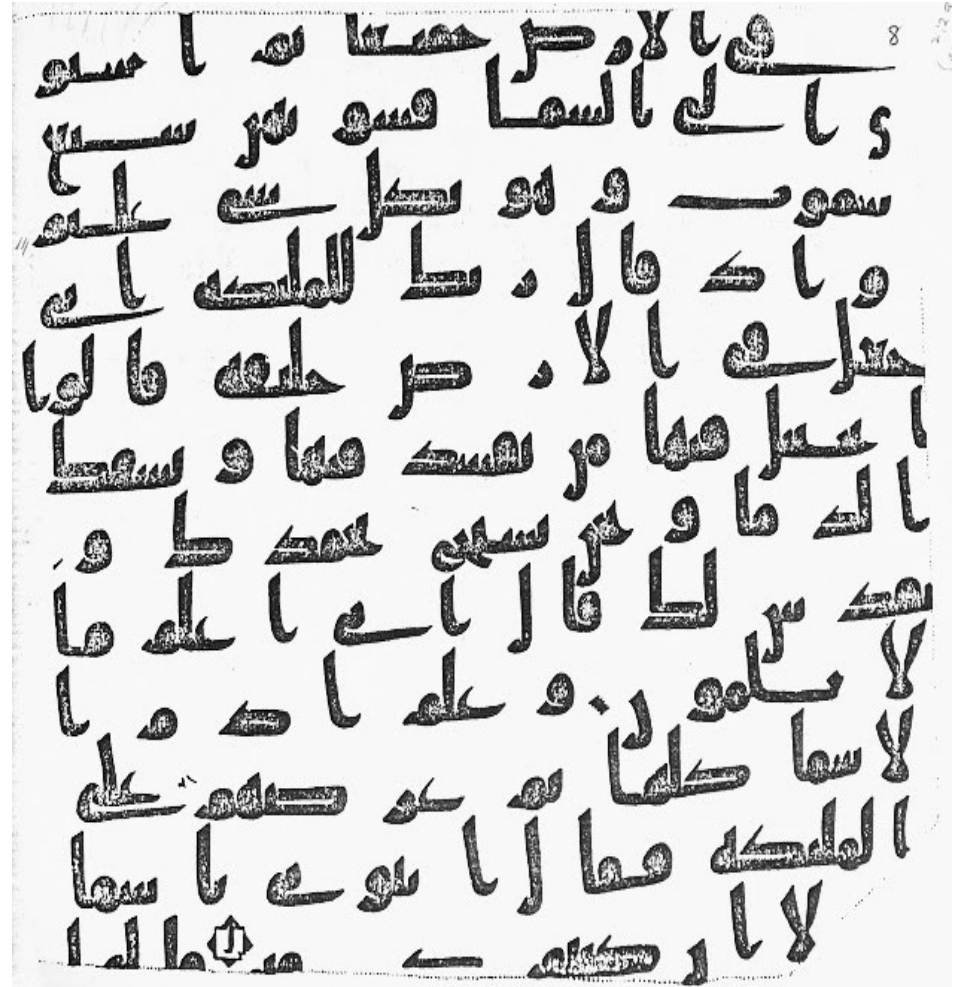 8
في الارض جميعا ثم استو
ى الى السما فسو هن سبع
سموت و هو بكل شي عليم
و اذ قال ربك للملئكه اني
جعل في الارض خليفه قالوا
اتجعل فيها من يفسد فيها و يسفك
الدما و نحن نسبح بحمدك و
نقدس لك قال اني اعلم ما
لا تعلمون و علم ادم ا
لاسما كلها ثم عرضهم على
الملئكه فقال انبوني باسما
لا ان كنتم